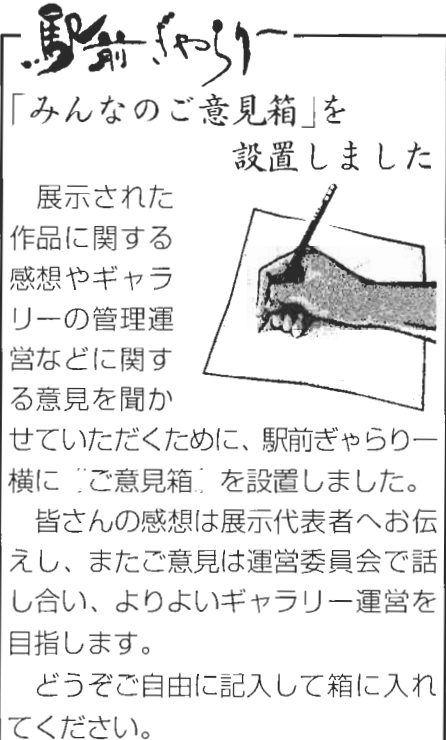 駅前ぎゃらりー
「みんなのご意見箱」を
設置しました
展示された
作品に関する
感想やギャラ
リーの管理運
営などに関す
る意見を聞か
せていただくために、駅前ぎゃらりー
横に「ご意見箱」を設置しました。
皆さんの感想は展示代表者へお伝
えし、またご意見は運営委員会で話
し合い、よりよいギャラリー運営を
目指します。
どうぞご自由に記入して箱に入れ
てください。